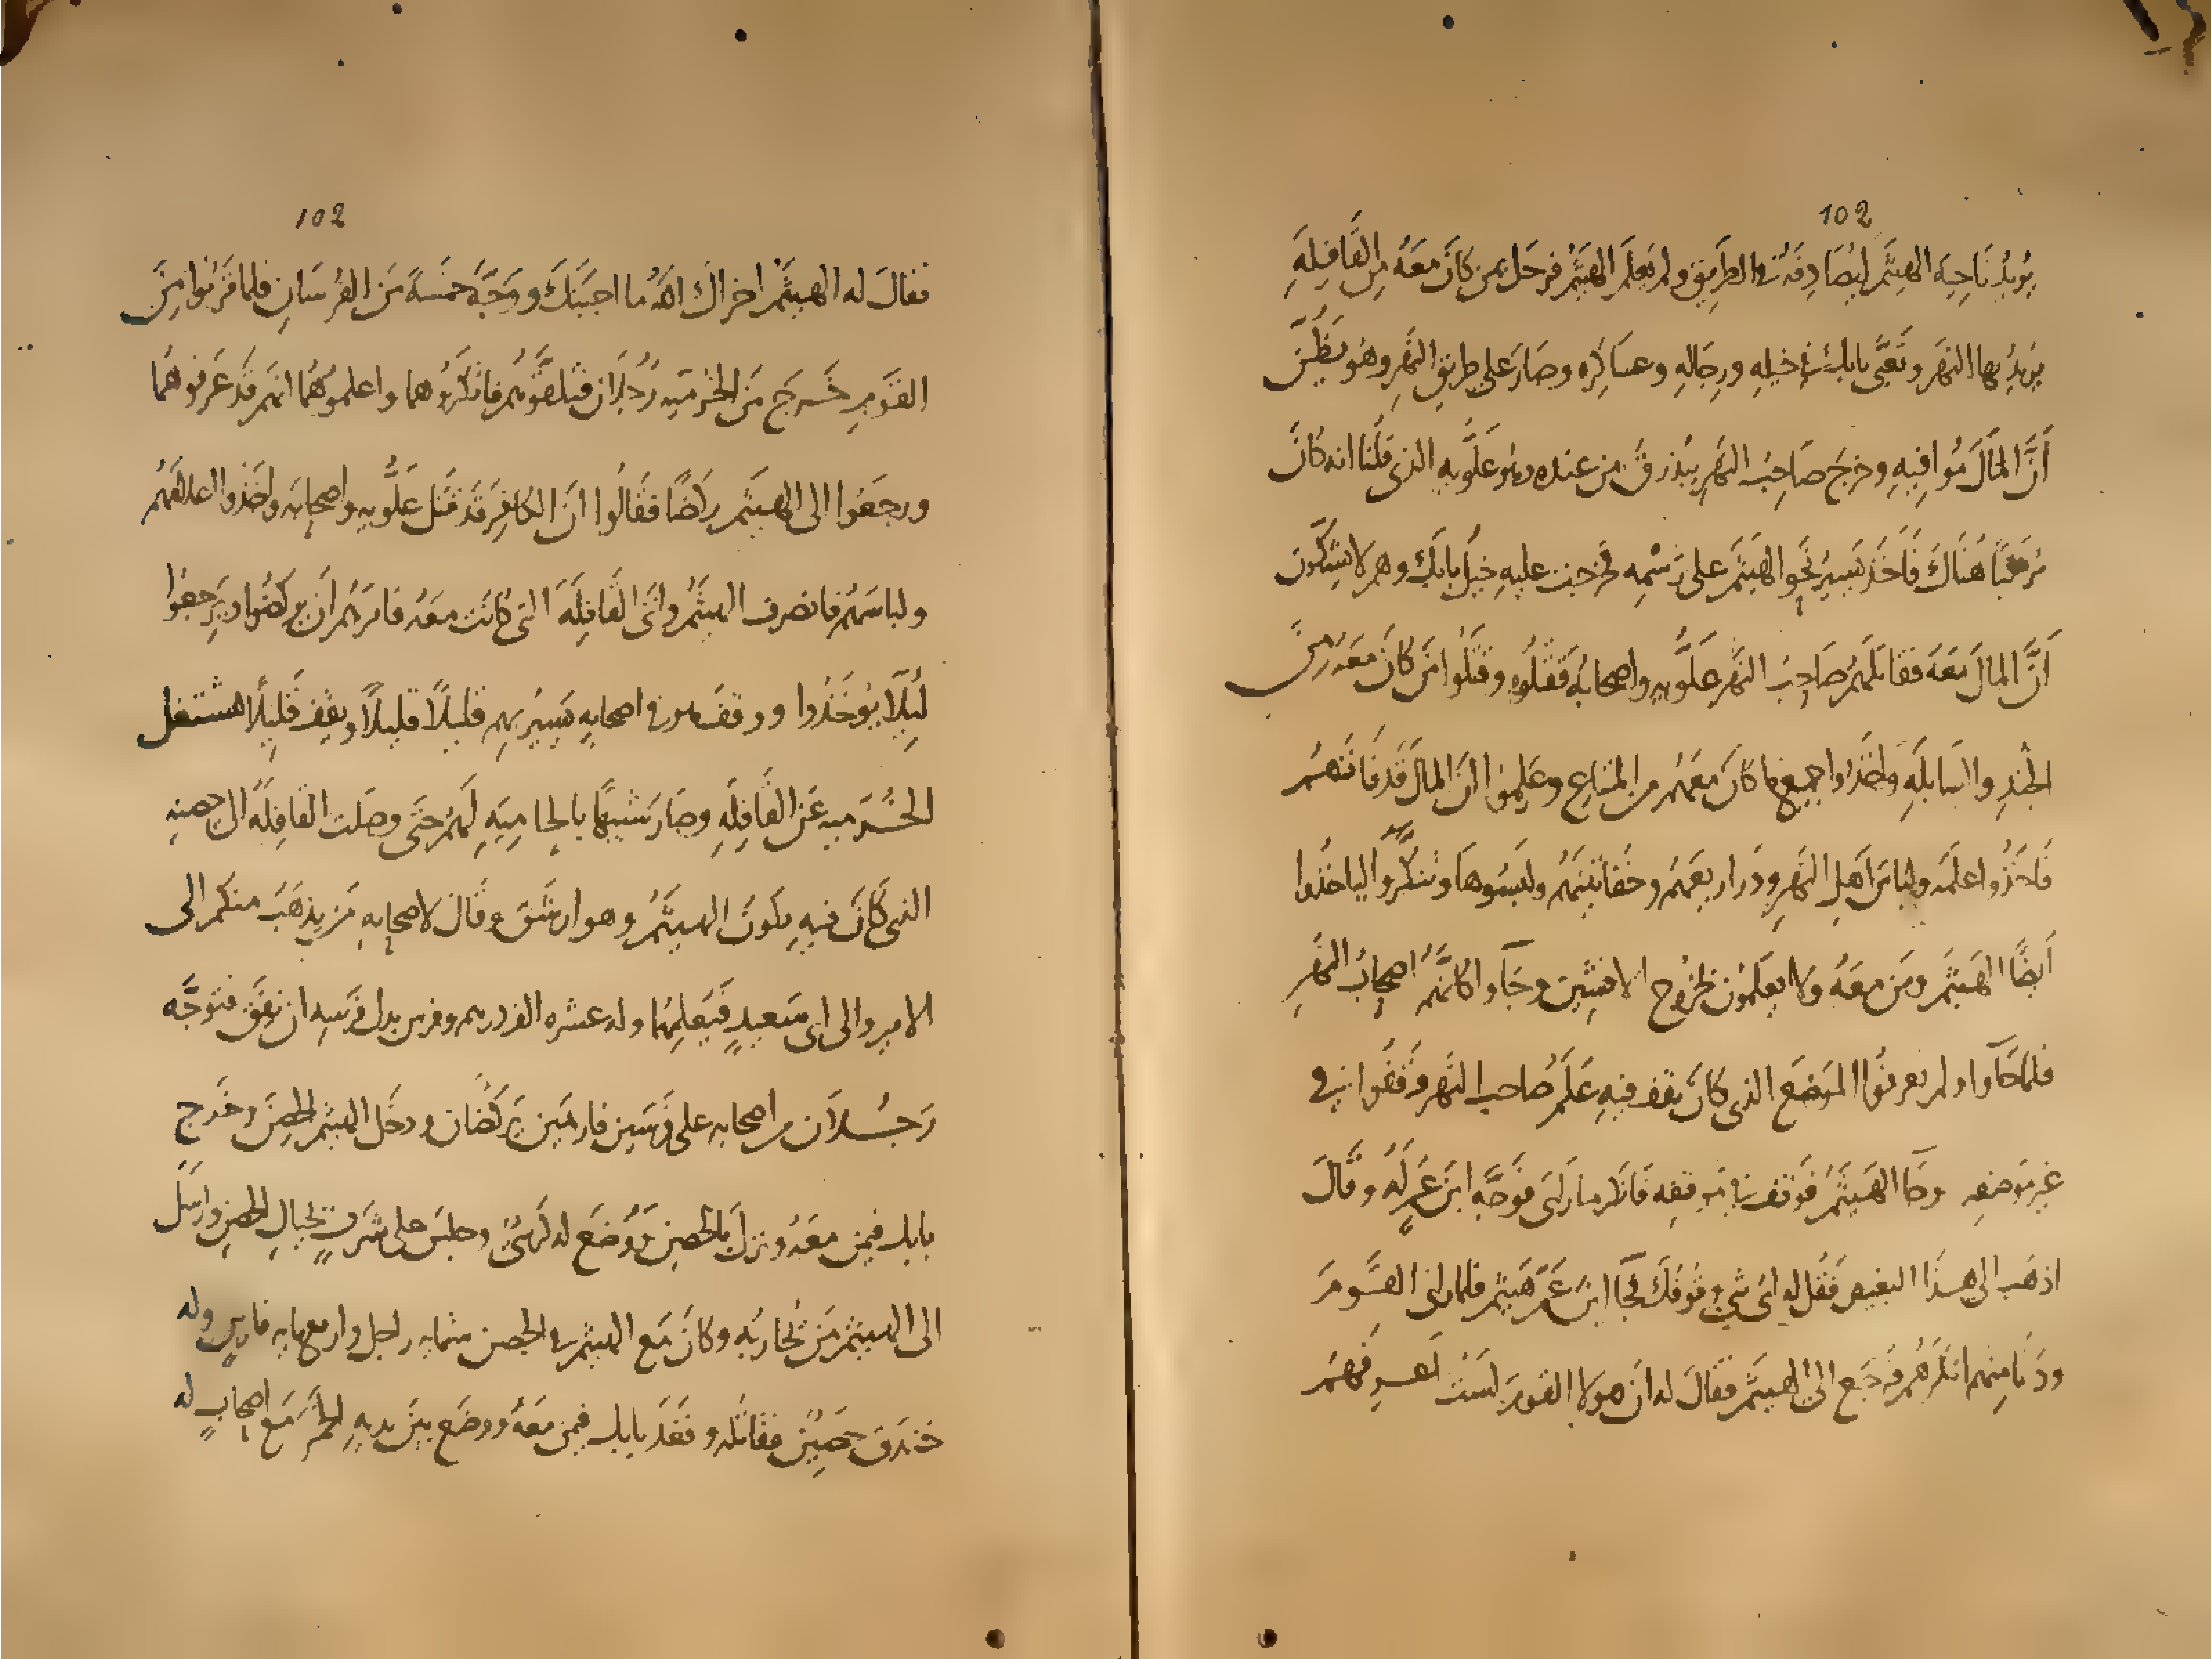 102
يُريدُ نَاحِيَة الهيثَم ليُصَادِفَهُ في الطريق ولم يَعلَم الهيثَم فرحَل بمن كانَ مَعَهُ مِنَ القَافِلَةِ
يريدُ بها النهر وتَعبَّى بابك في خيلِهِ ورجَالِهِ وعساكِره وصَارَ على طريق النهر وهُو يظُنّ
أنَّ المالَ مُوافِيهِ وخرجَ صَاحِبُ النهرِ يبذرقُ من عنده وهُو علّويه الذي قُلنا انه كانَ
مُرَتّبًا هُنَاكَ فَأخَذ يَسيرُ نحو الهيثم على رَسْمِه فخرجت عليه خيلُ بابك وهم لا يشكّون
أنَّ المالَ معَهُ فقاتلهم صَاحِبُ النهر علّويه واصحابُه فقتلوه وقتَلوا مَن كانَ معَهُ مِنَ
الجُندِ والسَابلَةِ واخَذُوا جميع ما كانَ معَهُم من المتَاعِ وعَلِمُوا انَّ المالَ قد فَاتَهم
فَأخَذُوا علَمَه ولباسَ أهلِ النهرِ ودَراريعَهُم وخفاتينَهُم ولبسُوهَا وتنكّروا لياخذوا
أيضًا الهَيثَم ومَن معَهُ ولا يعلَمُون بخُروج الافشين وجَآوا كانَّهُم اصحابُ النهر
فلما جَآوا ولم يعرفُوا الموضعَ الذي كانَ يقفُ فيهِ علَم صَاحب النهر وَقَفُوا في
غير مَوضعِه وجَا الهيثمُ فَوَقف في مَوقفِه فأنكر ما رَأى فوجّه ابنَ عَمٍّ لَهُ وقالَ
اذهَب الى هذا البغيض فَقُل له اىّ شي وقُوفُكَ فجَا ابنُ عَمّ هيثم فلما راى القوم
ودَنَا مِنهم انكرَهُم فرَجَع الى الهيثم فقالَ له ان هولا القوم لَستُ أعرفهُم
102
فقالَ له الهيثَم اخزاك اللهُ ما اجبَنَكَ ووَجَّهَ خمسَةً مَن الفُرسَانِ فلما قَرُبُوا مِنَ
القَومِ خَرجَ مَن الخُرّميّه رَجُلَان فتلقَّوهُم فانكرُوهما واعلموهُما انهم قد عَرفوهُما
ورجَعُوا الى الهيثم ركضًا فقَالُوا انّ الكافِرَ قَد قَتل علّويه واصحابَه واخذوا اعلامَهُم
ولباسَهُم فانصرف الهيثَمُ واتى القافِلَةَ التى كانت معَهُ فامرَهُم أن يركضُوا ويرجعُوا
لِئلَّا يُوخَذُوا ووقفَ هو في اصحابِهِ يَسيرُ بِهم قليلًا قليلًا ويقفُ قَلِيلًا ليشتغل
الخُرّميه عَن القافِلَةِ وصَارَ شبيهًا بالحاميةِ لَهُم حتّى وصَلت القافِلَة الى الحِصنِ
الذي كَانَ فيهِ يكونُ الهيثَمُ وهو ارشق وقَال لاصحابِهِ مَن يذهَبَ منكم الى
الامير والى ابى سَعيدٍ فيُعلِمُهما وله عشره الف درهم وفرس بدل فرَسِهِ ان نفقَ فتوجَّه
رَجُلَان من اصحابِه على فَرسَين فارهَين يَركُضَان ودخَل الهيثم الحِصنَ وخَرج
بابك فيمن معَهُ ونزلَ بالحصن ووُضعَ له كُرسيٌّ وجلسَ على شَرفٍ بحِيالِ الحِصنِ وارسَل
الى الهيثم مَن يُحارِبُه وكانَ مَع الهيثم في الحصن ستمايه راجل واربعمايه فارسٍ وله
خندق حَصِينٌ فقاتلَه وقعَدَ بابك فيمن معَهُ ووضعَ بينَ يديهِ الخَمرُ مَع اصحابٍ له